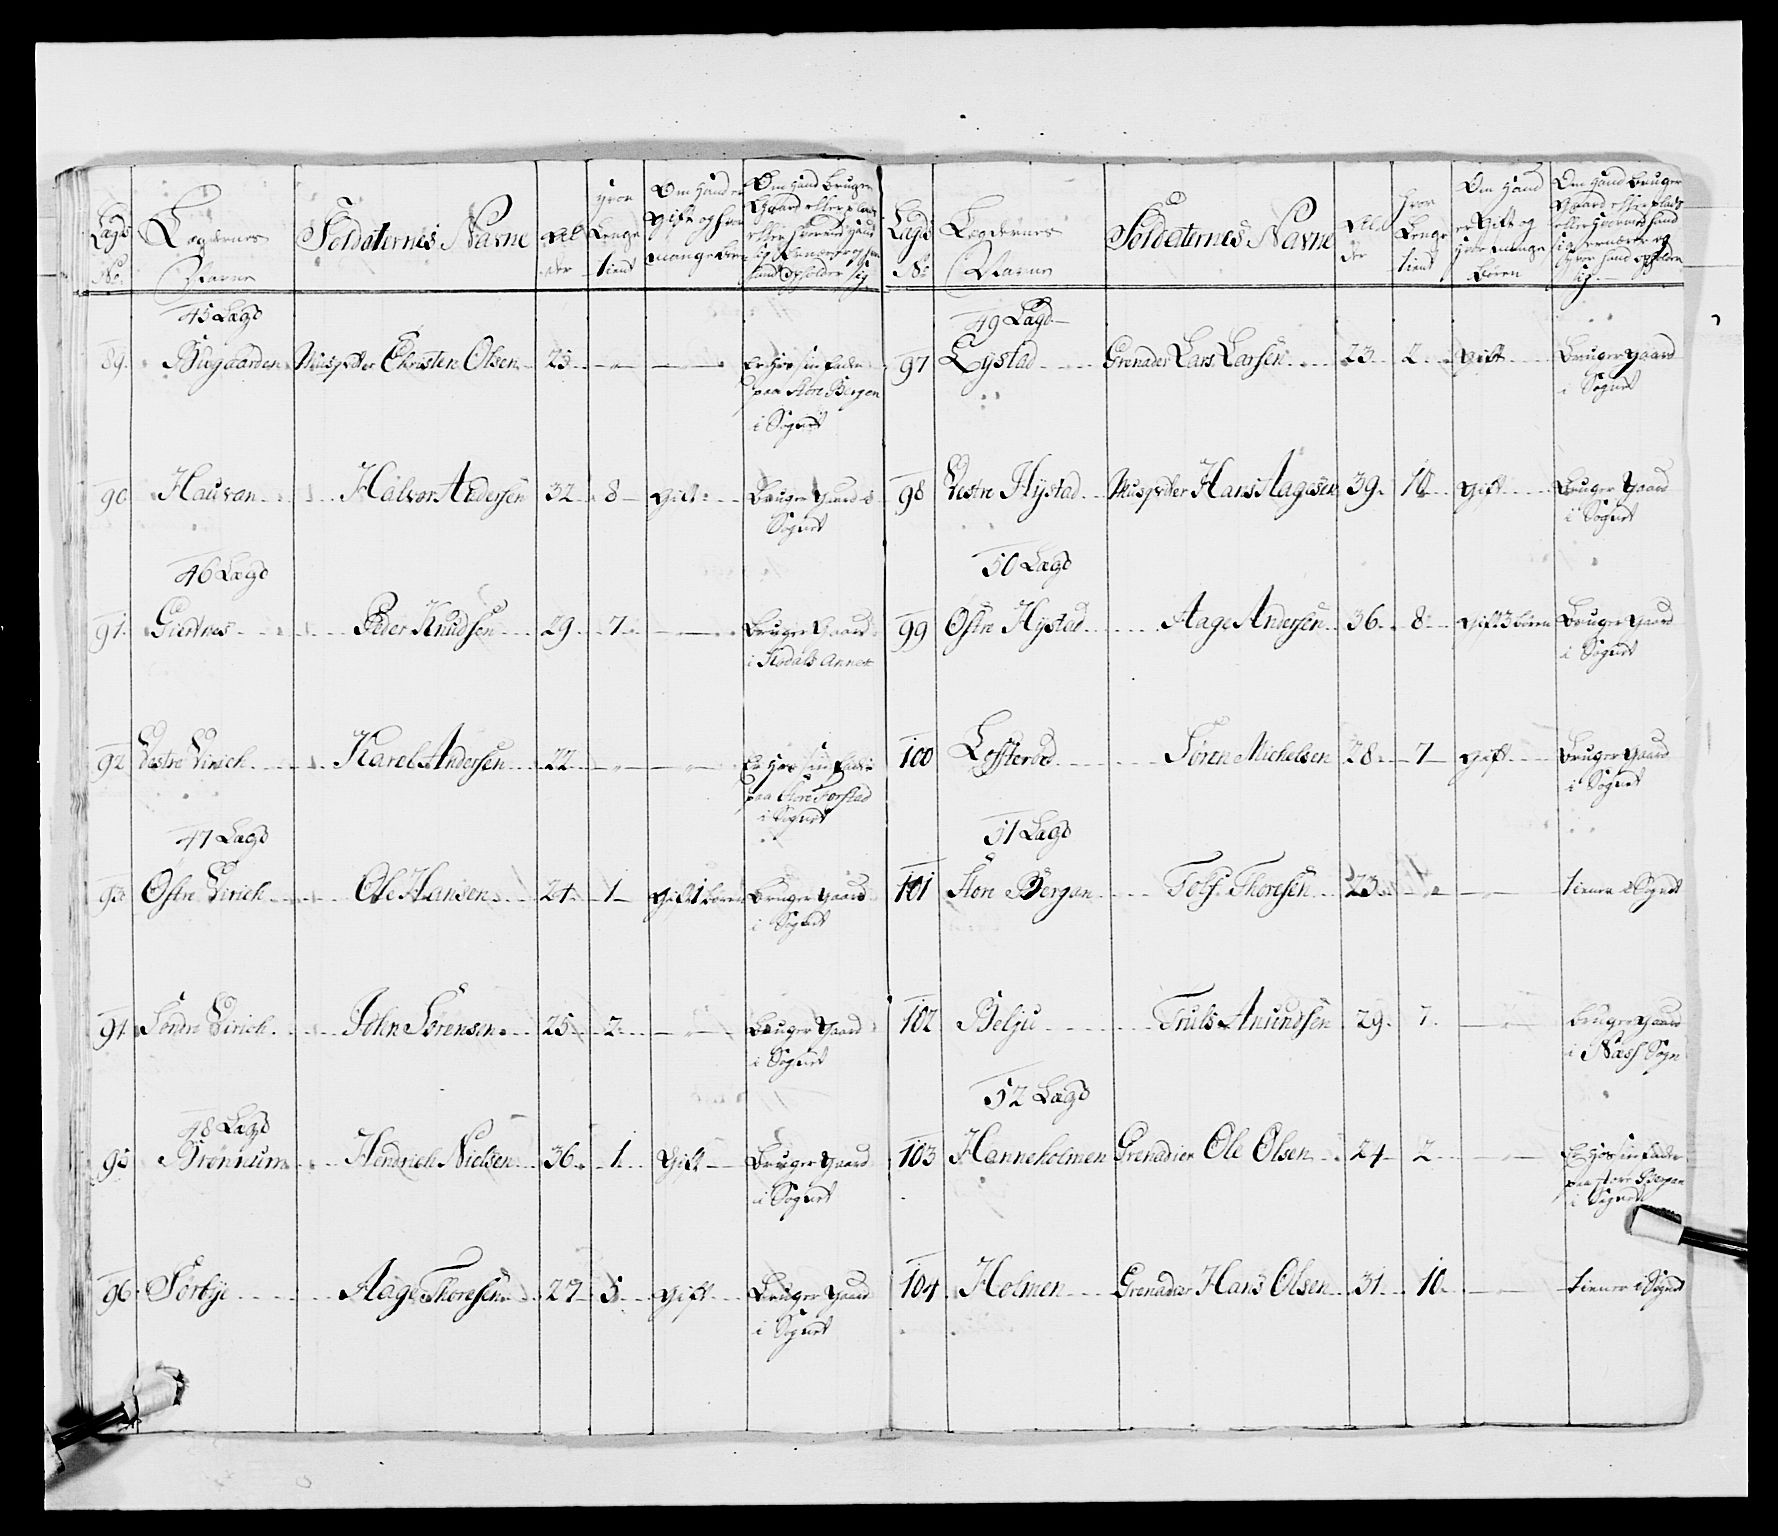 Lægs No.
Lægdernes Navne
Soldaternes Navne
Alder
Hvor Lenge tient
Om Hand er gift og hvor mange børn
Om Hand bruger Gaard eller plads eller hvorved Hand sig ernærer og hvor hand opholder sig
45 Lægd
89. Biugaarden Musqvtter Christen Olsen 25 Er Hos sin Fader
paa Store Bergen
i Sognet
90 Hauvan Halvor Andersen 32 8 gift Bruger Gaard i
Sognet
46 Lægd
91. Giertnes Peder Knudsen 29 7 Bruger Gaard
i Jdals Annex
92 Vestre Virich Karel Andersen 22 Er Hos sin Fader
paa Store Torstad
i Sognet
47 Lægd
93 Østre Virich Ole Hansen 24 1 gift 1 børn Bruger Gaard
i Sognet
94 Søndre Virich John Sørensen 25 2 Bruger Gaard
i Sognet
48 Lægd
95 Brønnum Hendrich Nielsen 36 1 Gift Bruger Gaard
i Sognet
96 Sørbye Aage Thoresen 27 5 gift Bruger Gaard
i Sognet
Lægs No.
Lægdernes Navne
Soldaternes Navne
Alder
Hvor Lenge tient
Om Hand er Gift og Hvor mange Børn
Om Hand Bruger Gaard eller plads eller Hvorved Hand sig ernærer og Hvor Hand opholder sig
49 Lægd
97 Lystad Grenader Lars Larsen 23 2 gift Bruger gaard
i Sognet
98 Vestre Hystad Musqvtter Hans Aagesen 39 10 gift Bruger Gaard
i Sognet
50 Lægd
99 Østre Hystad Aage Andersen 36 8 gift 3 børn Bruger Gaard
i Sognet
100 Løfsterød Søren Michelsen 28 7 gift Bruger Gaard
i Sognet
51 Lægd
101 Store Bergen Tolf Thoresen 23 tiener i Sognet
102 Belju Truls Anundsen 29 7 Bruger gaard
i Næss Sogn
52 Lægd
103 Hanneholmen Grenadier Ole Olsen 24 2 Er Hos sin Fader
paa store Bergen
i Sognet
104 Holmen Grenadier Hans Olsen 31 10 tiener i Sognet